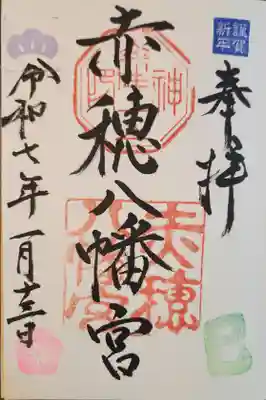 謹賀
新年
奉拝
赤穂八幡宮
赤穂
八幡宮
令和七年一月十三日